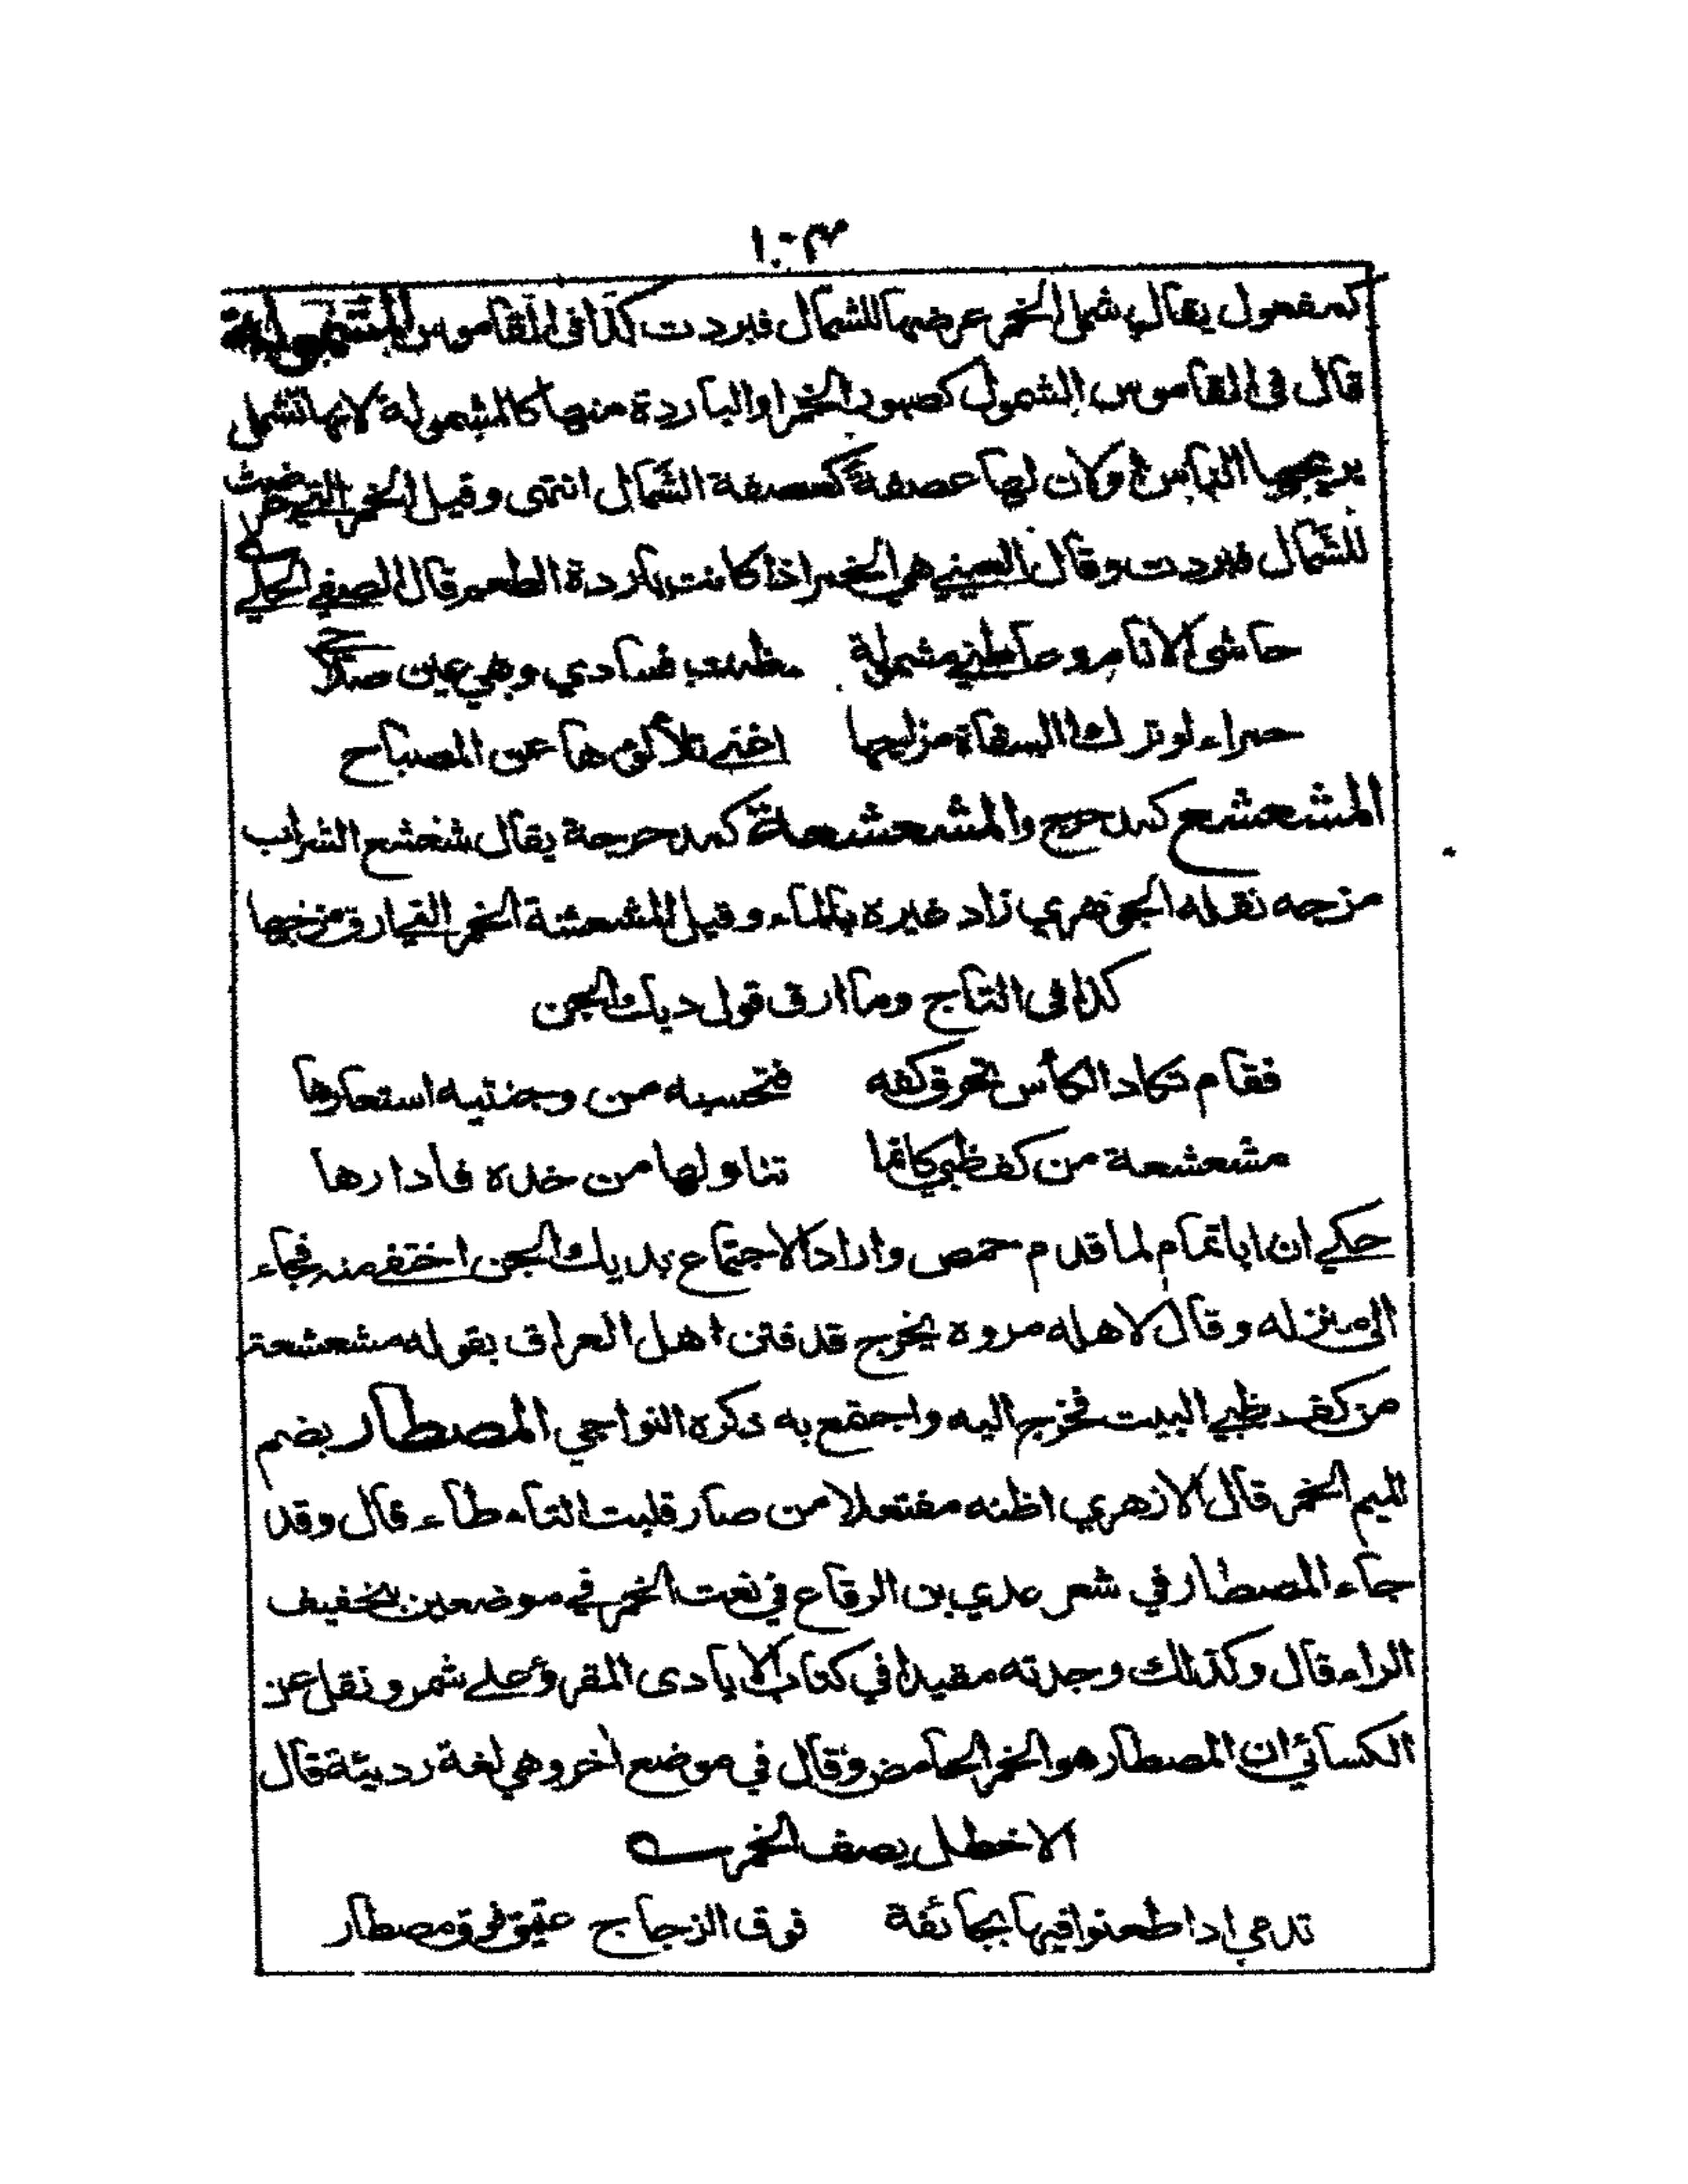 ١٠٣
كمفعول يقال شمل الخمر عرضها للشمال فبردت كذا فى القاموس المشمولة
قال فى القاموس الشمول كصبور الخمر او الباردة منها كالمشمولة لانها تشمل
بريحها الناس او لان لها عصفة كعصفة الشمال انتهى وقيل الخمر التي عرضت
للشمال فبردت وقال العيني هي الخمر اذا كانت باردة الطعم قال الصفي الحلي
حاشى الانام وعاطني مشمولة فسادي وهي عين صلاح
حمراء لو ترك السقاة مزاجها اغنى تلألؤها عن المصباح
المشعشع كمدحرج والمشعشعة كمدحرجة يقال شعشع الشراب
مزجه نقله الجوهري زاد غيره بالماء وقيل المشعشعة الخمر التي ارق مزجها
كذا فى التاج وما ارق قول ديك الجن
فقام تكاد الكأس تحرق كفه فتحسبه من وجنتيه استعارها
مشعشعة من كف ظبي كانما تناولها من خده فادارها
حكي ان اباتمام لما قدم حمص واراد الاجتماع بديك الجن اختفى منه فجاء
الى منزله وقال لاهله مروه يخرج قد فتن اهل العراق بقوله مشعشعة
من كف ظبي البيت فخرج اليه واجتمع به ذكره النواجي المصطار بضم
الميم الخمر قال الازهري اظنه مفتعلا من صار قلبت التاء طاء قال وقد
جاء المصطار في شعر عدي بن الرقاع في نعت الخمر في موضعين بتخفيف
الراء قال وكذلك وجدته مقيدا في كتاب الايادى المقروء على شمر ونقل عن
الكسائي ان المصطار هو الخمر الحامض وقال في موضع اخر وهي لغة رديئة قال
الاخطل يصف الخمر
تدعي اذا طعنوا فيها بجائفة فوق الزجاج عتيق مصطار